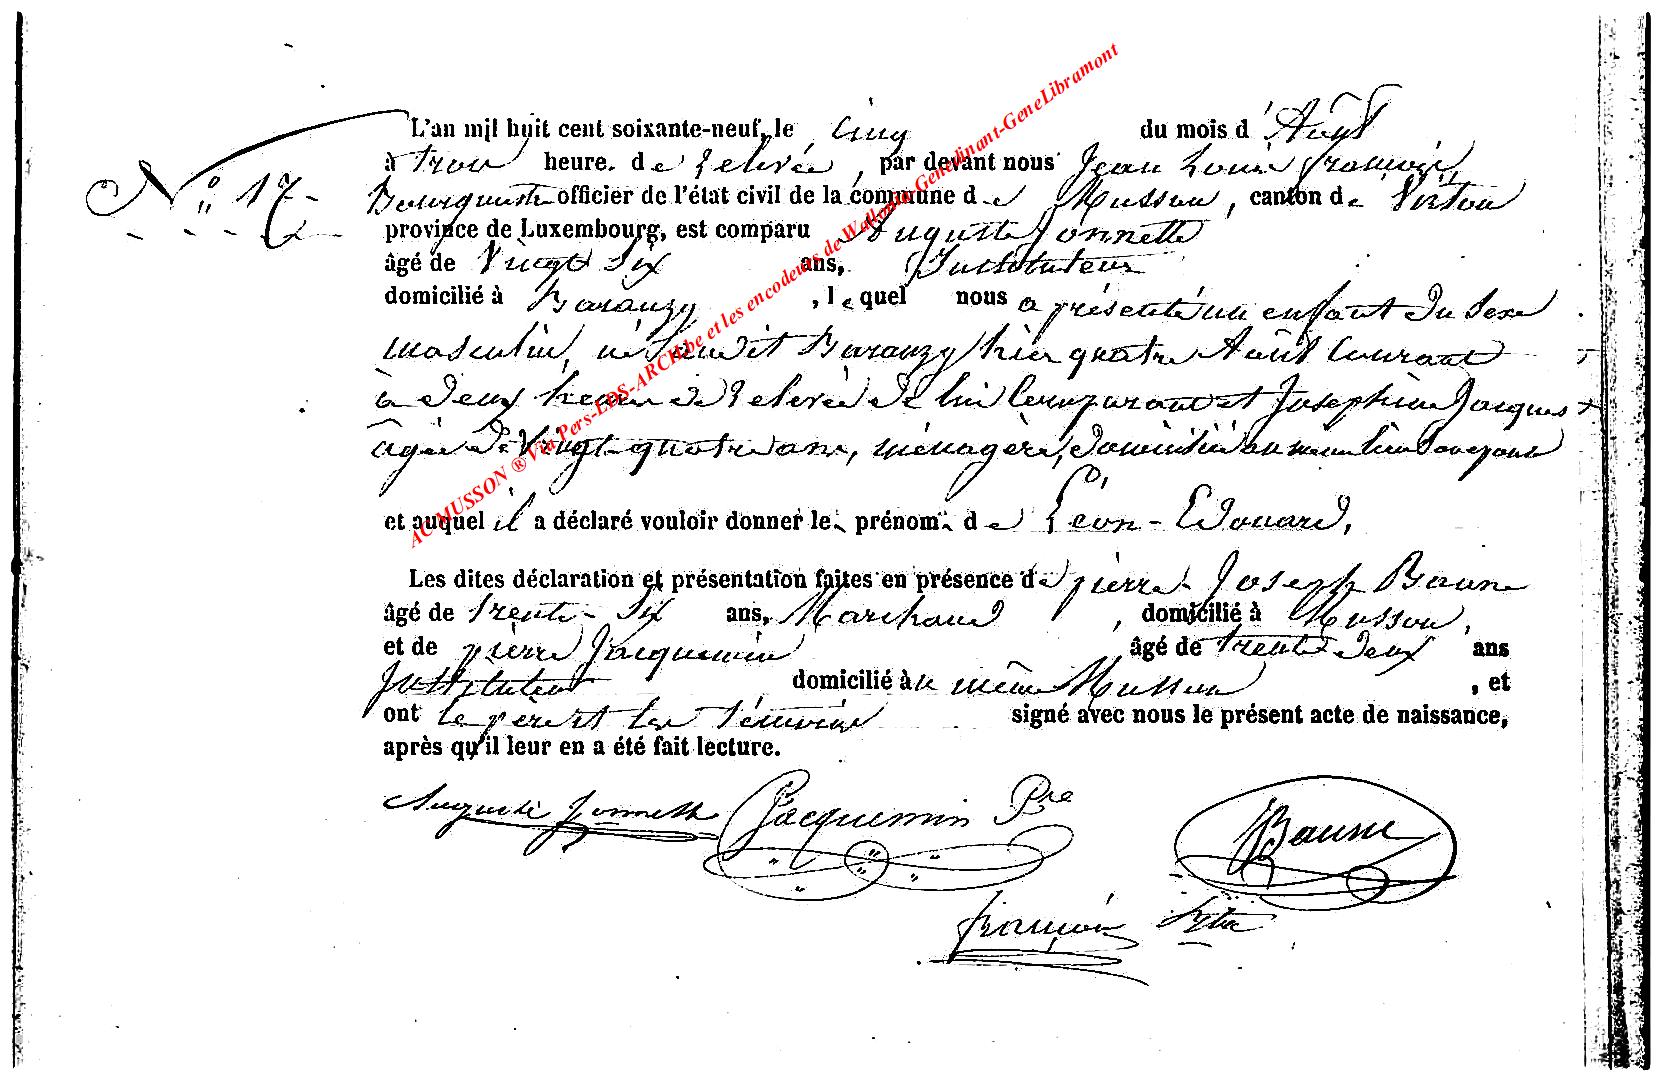 L'an mil huit cent soixante-neuf, le cinq du mois d'Août
à trois heure. de relevée, par devant nous Jean Louis François,
N° 17 - Bourgmestre officier de l'état civil de la commune de Musson, canton de Virton
province de Luxembourg, est comparu Auguste Jonnette
âgé de Vingt Six ans, Instituteur
domicilié à Baranzy, lequel nous a présenté un enfant du sexe
masculin, né audit Baranzy hier quatre Août Courant
à deux heures de relevée de lui Comparant et Joséphine Jacques
âgée de Vingt-quatre ans, ménagère, domiciliée au même lieu son épouse
et auquel il a déclaré vouloir donner le prénom de Léon-Edouard,
Les dites déclaration et présentation faites en présence de pierre-Joseph Baune
âgé de trente-six ans, Marchand, domicilié à Musson,
et de pierre Jacquemin âgé de trente deux ans
Instituteur domicilié au même Musson, et
ont le père et les témoins signé avec nous le présent acte de naissance,
après qu'il leur en a été fait lecture.
Auguste Jonnette Jacquemin Pre Baune
François
AC MUSSON ® Via Pers-EDS-ARCH.be et les encodeurs de Wallonia-Genedinant-GeneLibramont